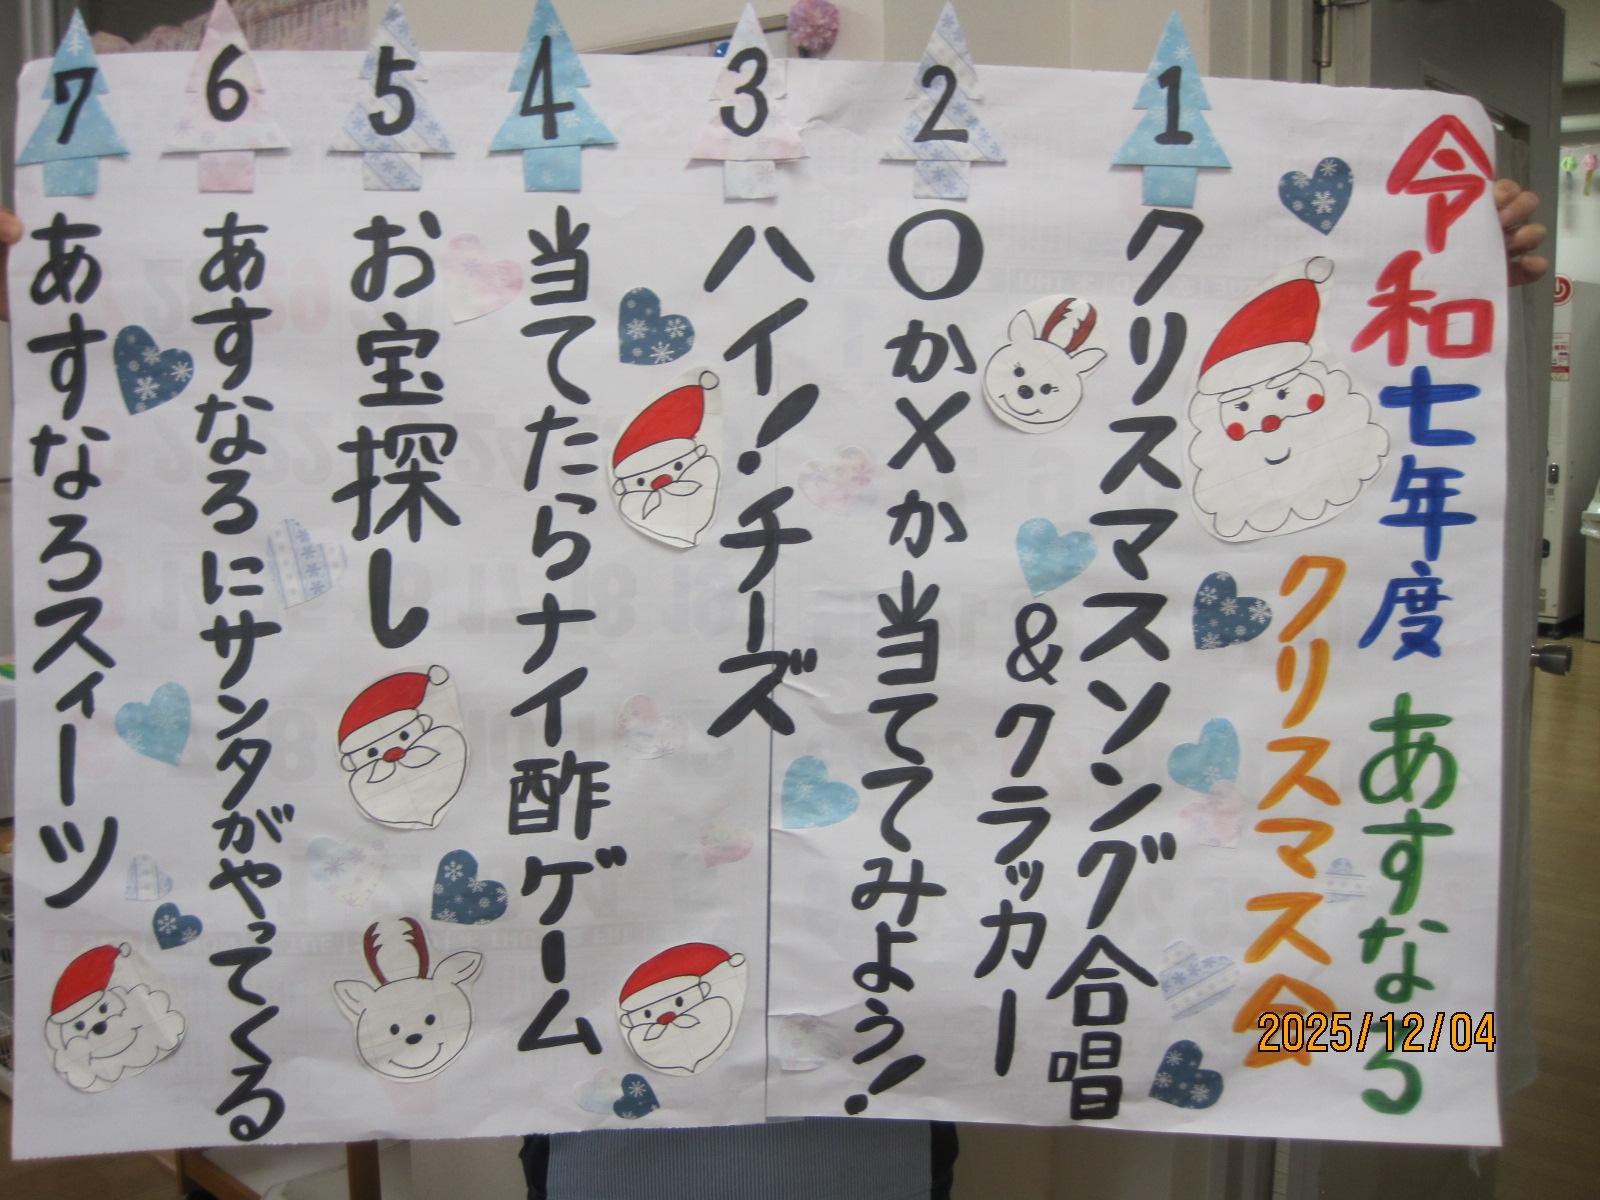 令和七年度 あすなろ
クリスマス会
1 クリスマスソング合唱
&クラッカー
2 〇か×か当ててみよう!
3 ハイ!チーズ
4 当てたらナイ酢ゲーム
5 お宝探し
6 あすなろにサンタがやってくる
7 あすなろスィーツ
2025/12/04